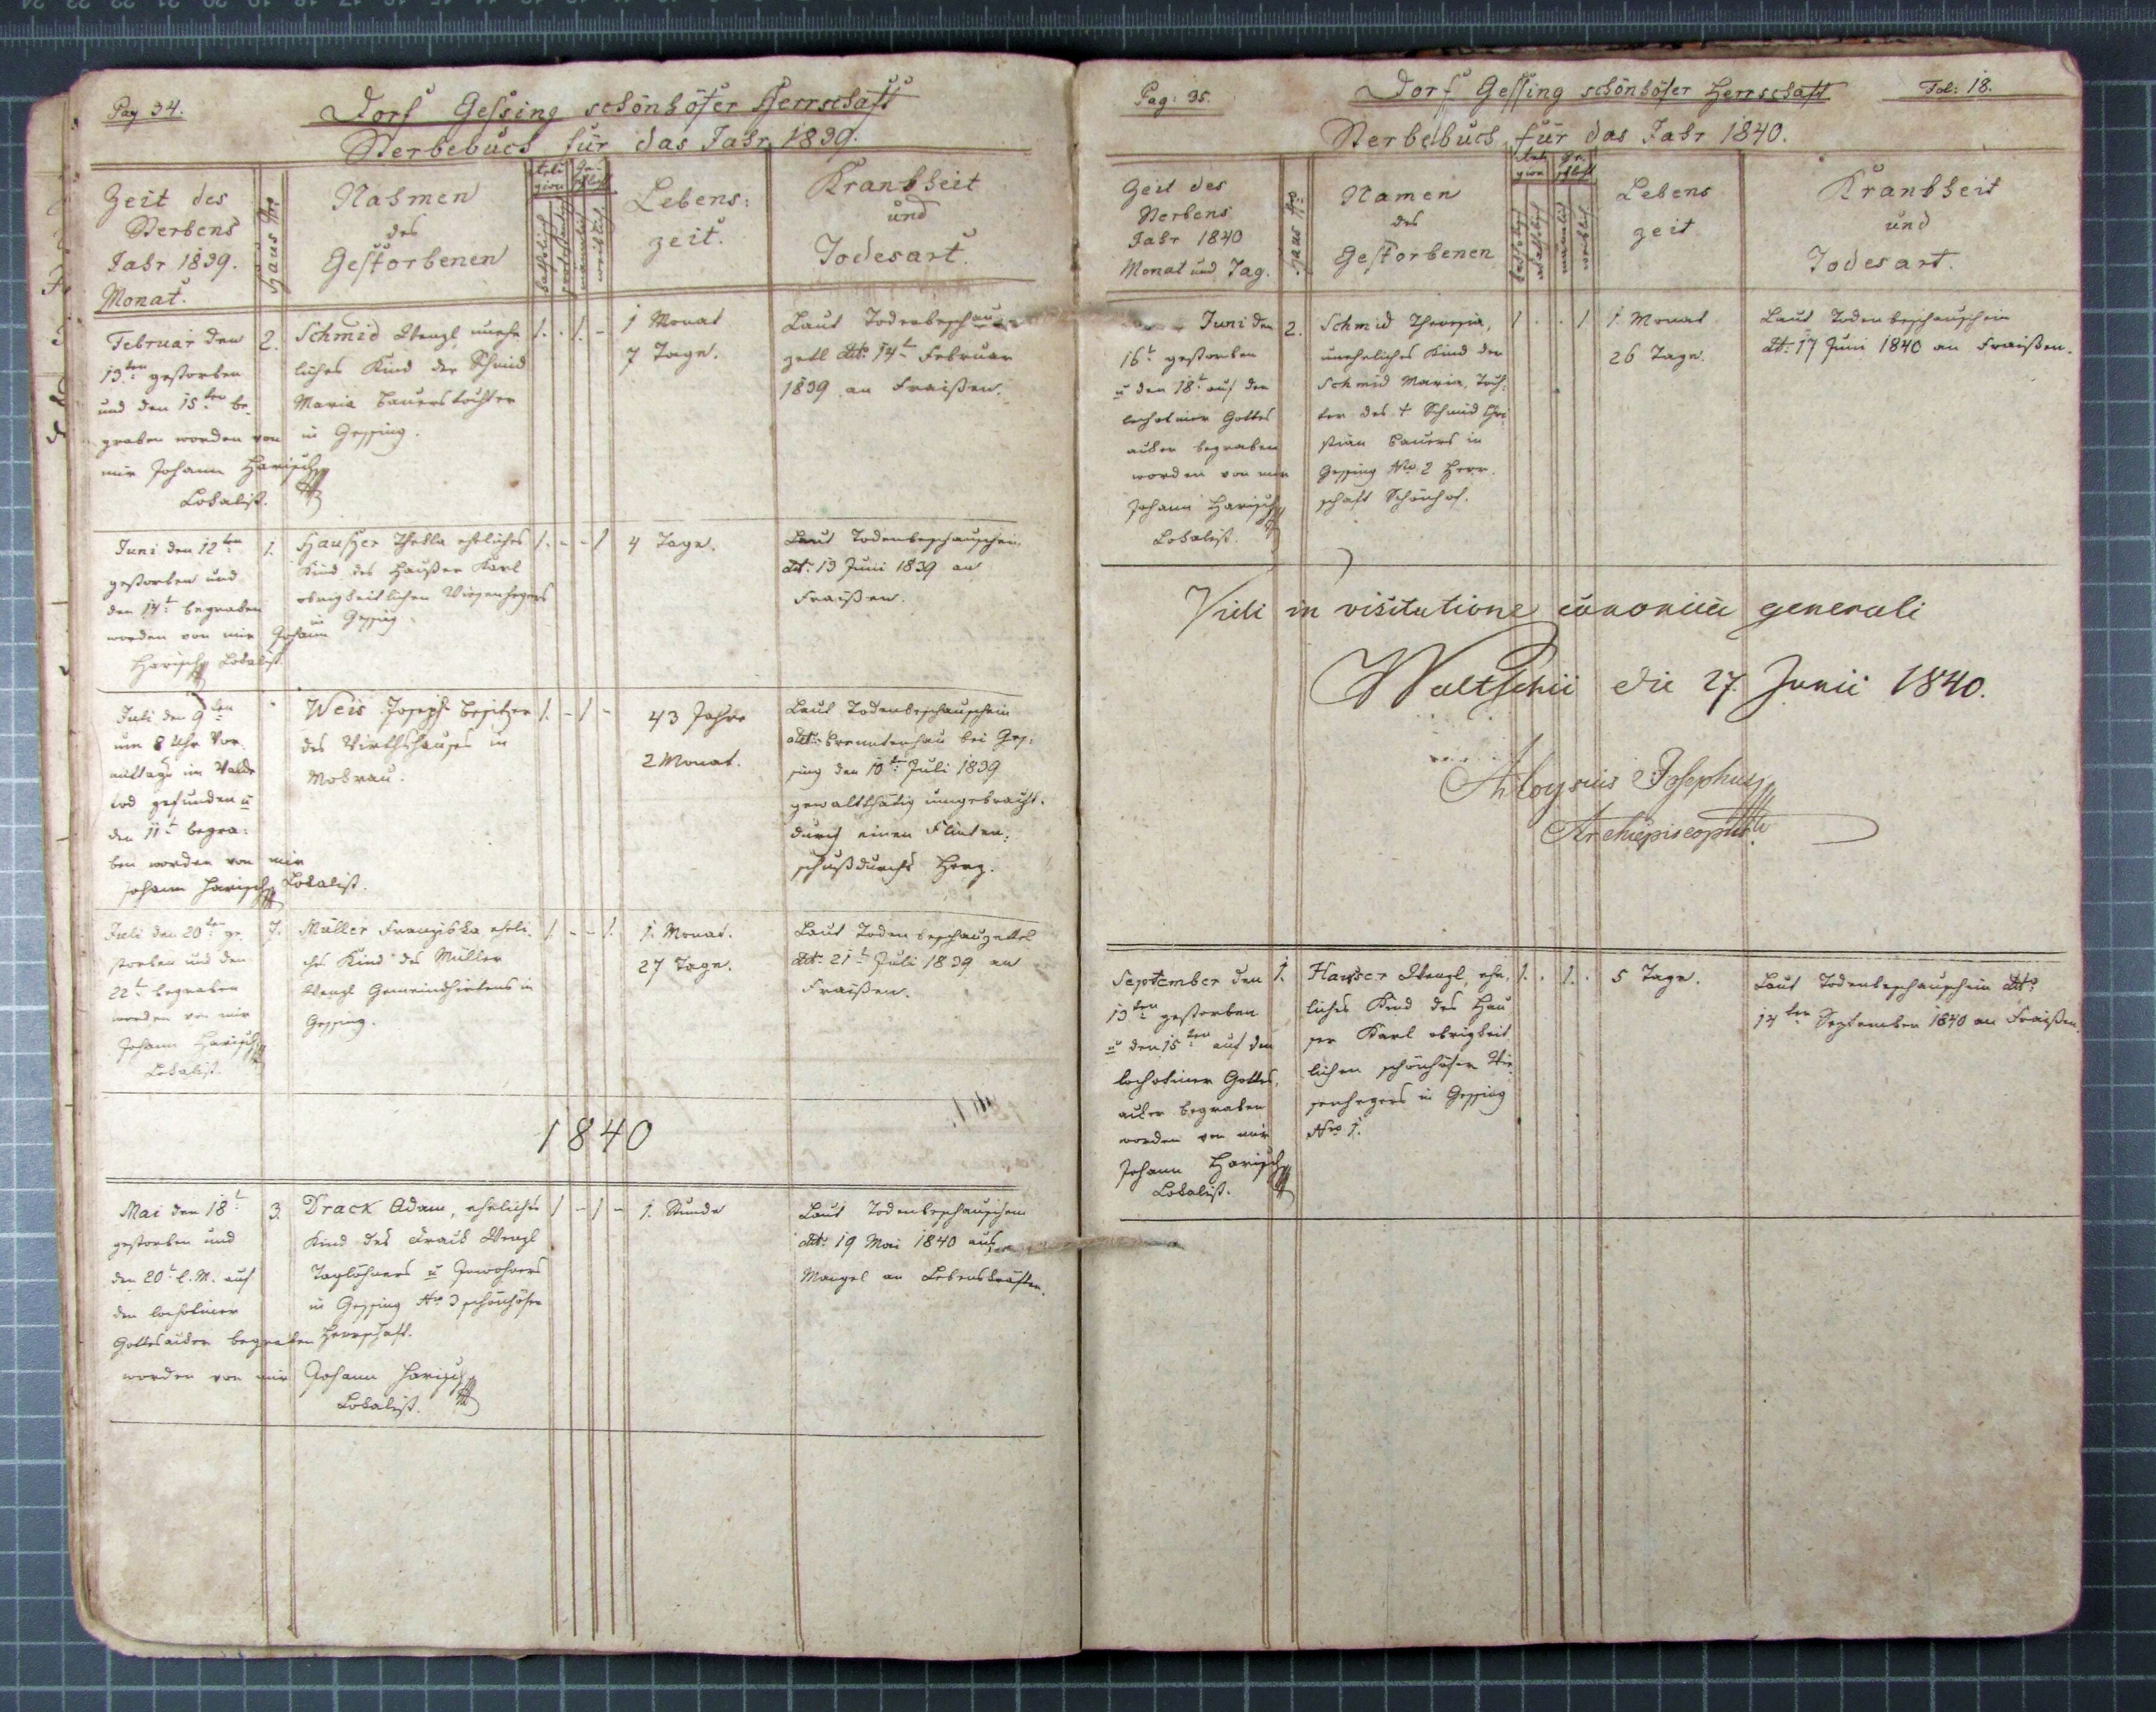 Pag 34.
Dorf Gessing schönhöfer Herrschaft
Sterbebuch für das Jahr 1839.
Zeit des
Sterbens
Jahr 1839.
Monat.
Haus Nro
Nahmen
des
Gestorbenen
Reli
gion
Ge
schlecht
katholisch
protestantisch
männlich
weiblich
Lebens:
zeit.
Krankheit
und
Todesart.
Februar den
13ten gestorben
und den 15ten be
graben worden von
mir Johann Harisch
Lokalist.
2.
Schmid Wenzl, unehe
liches Kind der Schmid
Maria Bauerstochter
in Gessing.
1. . 1. -
1 Monat
7 Tage.
Laut Todenbeschau
zetl dto 14t Februar
1839 an Fraißen.
Juni den 12ten
gestorben und
den 14t begraben
worden von mir Johann
Harisch Lokalist.
1.
Haußer Thekla eheliches
Kind des Haußer Karl
obrigkeitlichen Wiesenhegers
in Gessing.
1. - - 1
4 Tage.
Laut Todenbeschauschein
dto 13 Juni 1839 an
Fraißen.
Juli den 9ten
um 8 Uhr Vor
mittags im Walde
tod gefunden u
den 11t begra:
ben worden von mir
Johann Harisch Lokalist.
Weis Joseph Besitzer
des Wirthshauses in
Mokrau.
1. - 1 -
43 Jahre
2 Monat.
Laut Todenbeschauschein
dto Brenntenhau bei Ges:
sing den 10ten Juli 1839
gewaltthätig umgebracht.
durch einen Flinten:
schuß durchs Herz.
Juli den 20ten ge
storben und den
22t begraben
worden von mir
Johann Harisch
Lokalist.
7.
Müller Franziska eheli
ches Kind des Müller
Wenzl Gemeindhirtens in
Gessing.
1. - - 1.
1. Monat.
27 Tage.
Laut Todenbeschauzettel
dto 21t Juli 1839 an
Fraißen.
1840
Mai den 18t
gestorben und
den 20t l. M. auf
den lochotiner
Gottesacker begraben
worden von mir Johann Harisch
Lokalist.
3.
Drack Adam, eheliches
Kind des Drack Wenzl
Taglöhners u Inwohners
in Gessing Nro 3 schönhöfer
Herrschaft.
1 - 1 -
1. Stunde
Laut Todenbeschauschein
dto 19 Mai 1840 aus
Mangel an Lebenskräften.
Pag: 35.
Dorf Gessing schönhöfer Herrschaft
Fol: 18.
Sterbebuch für das Jahr 1840.
Zeit des
Sterbens
Jahr 1840
Monat und Tag.
Haus Nro
Namen
des
Gestorbenen
Reli
gion
Ge
schlecht
katholisch
männlich
weiblich
Lebens
zeit
Krankheit
und
Todesart.
Juni den
16t gestorben
u den 18t auf den
lochotiner Gottes
acker begraben
worden von mir
Johann Harisch
Lokalist.
2.
Schmid Theresia,
uneheliches Kind der
Schmid Maria, Toch
ter des † Schmid Chri
stian Bauers in
Gessing Nro 2 Herr
schaft Schönhof.
1 . . 1
1. Monat
26 Tage.
Laut Todenbeschauschein
dto 17 Juni 1840 an Fraißen.
Vidi in visitatione canonica generali
Waltschii die 27. Junii 1840.
Aloysius Josephus
Archiepiscopus
September den
13ten gestorben
u den 15ten auf den
lochotiner Gottes
acker begraben
worden von mir
Johann Harisch
Lokalist.
1.
Hauser Wenzl, ehe
liches Kind des Hau
ser Karl obrigkeit
lichen schönhöfer Wie
senhegers in Gessing
Nro 1.
1. . 1. .
5 Tage.
Laut Todenbeschauschein dto
14ten September 1840 an Fraißen.